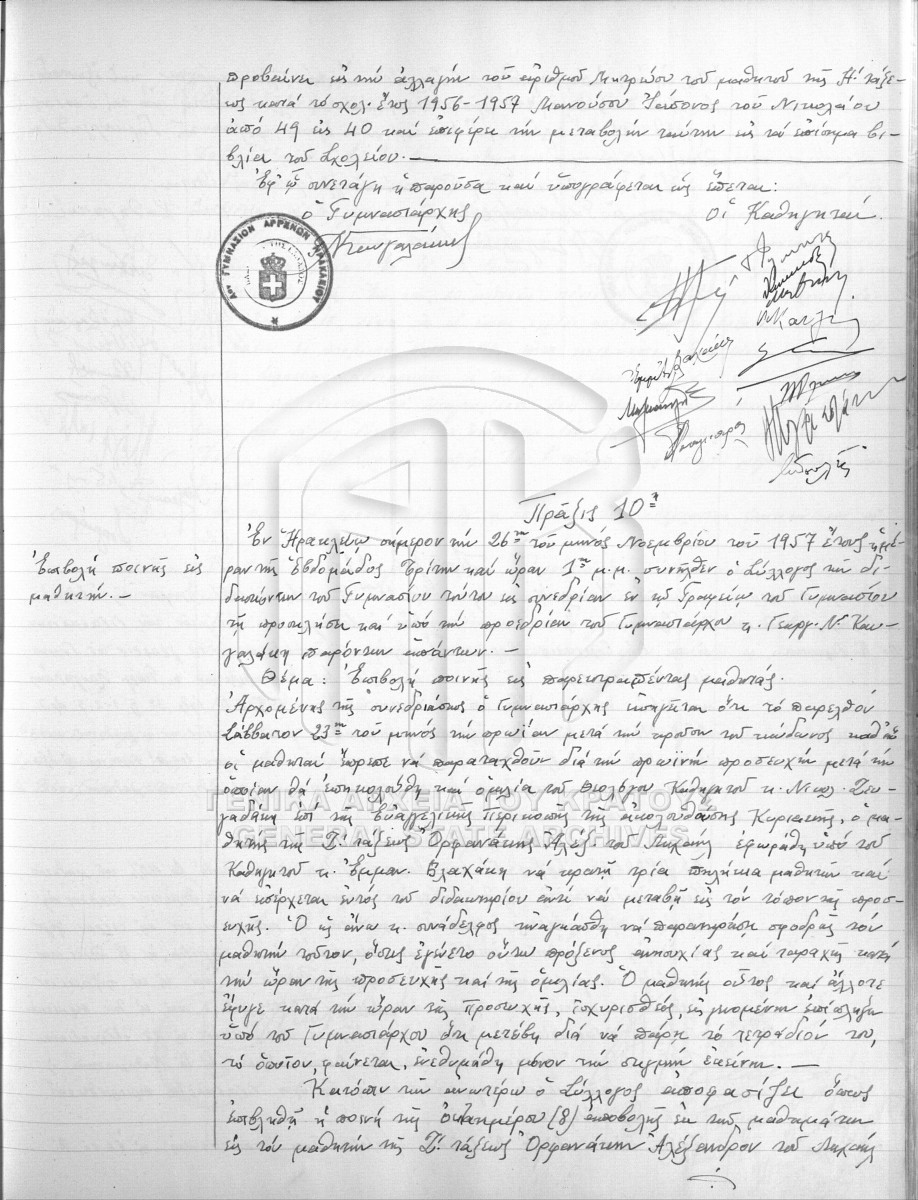 προβαίνει εἰς τὴν ἀλλαγὴν τοῦ ἀριθμοῦ Μητρώου τοῦ μαθητοῦ τῆς Η′ τάξε-
ως κατὰ τὸ σχολ. ἔτος 1956-1957 Μανούσου Ἰάσονος τοῦ Νικολάου
ἀπὸ 49 εἰς 40 καὶ ἐπιφέρει τὴν μεταβολὴν ταύτην εἰς τὰ ἐπίσημα βι-
βλία τοῦ Σχολείου.—
Ἐφ' ᾧ συνετάγη ἡ παροῦσα καὶ ὑπογράφεται ὡς ἕπεται:
ὁ Γυμνασιάρχης
οἱ Καθηγηταί.
Αον ΓΥΜΝΑΣΙΟΝ ΑΡΡΕΝΩΝ ΗΡΑΚΛΕΙΟΥ
Πρᾶξις 10η
Ἐν Ἡρακλείῳ σήμερον τὴν 26ην τοῦ μηνὸς Νοεμβρίου τοῦ 1957 ἔτους ἡμέ-
ραν τῆς ἑβδομάδος Τρίτην καὶ ὥραν 1ην μ.μ. συνῆλθεν ὁ Σύλλογος τῶν δι-
δασκόντων τοῦ Γυμνασίου τούτου εἰς συνεδρίαν ἐν τῷ Γραφείῳ τοῦ Γυμνασίου
τῇ προσκλήσει καὶ ὑπὸ τὴν προεδρίαν τοῦ Γυμνασιάρχου κ. Γεωργ. Ν. Καυ-
γαλάκη παρόντων ἁπάντων.—
Ἐπιβολὴ ποινῆς εἰς
μαθητήν.—
Θέμα: Ἐπιβολὴ ποινῆς εἰς παρεκτραπέντας μαθητάς.
Ἀρχομένης τῆς συνεδριάσεως ὁ Γυμνασιάρχης εἰσηγεῖται ὅτι τὸ παρελθὸν
Σάββατον 23ην τοῦ μηνὸς τὴν πρωΐαν μετὰ τὴν κροῦσιν τοῦ κώδωνος καθ' ἣν
οἱ μαθηταὶ ἔπρεπε νὰ παραταχθοῦν διὰ τὴν πρωϊνὴν προσευχὴν μετὰ τὴν
ὁποίαν θὰ ἐπηκολούθῃ καὶ ὁμιλία τοῦ Θεολόγου Καθηγητοῦ κ. Νικολ.
ἐπὶ τῆς Εὐαγγελικῆς Περικοπῆς τῆς ἀκολουθούσης Κυριακῆς, ὁ μα-
θητὴς τῆς Ζ′ τάξεως Ὀρφανάκης Ἀλέξ. τοῦ Μιχαήλ ἐφωράθη ὑπὸ τοῦ
Καθηγητοῦ κ. Ἐμμαν. Βλαχάκη νὰ κρατῇ τρία πηλήκια μαθητῶν καὶ
νὰ εἰσέρχεται ἐντὸς τοῦ διδακτηρίου ἀντὶ νὰ μεταβῇ εἰς τὸν τόπον τῆς προσ-
ευχῆς. Ὁ ὡς ἄνω κ. συνάδελφος ἠναγκάσθη νὰ παρατηρήσῃ σφοδρῶς τὸν
μαθητὴν τοῦτον, ὅστις ἐγένετο οὕτω πρόξενος ἀνησυχίας καὶ ταραχῆς κατὰ
τὴν ὥραν τῆς προσευχῆς καὶ τῆς ὁμιλίας. Ὁ μαθητὴς οὗτος καὶ ἄλλοτε
ἔφυγε κατὰ τὴν ὥραν τῆς προσευχῆς, ἰσχυρισθείς, εἰς γενομένην ἐπίπληξιν
ὑπὸ τοῦ Γυμνασιάρχου ὅτι μετέβη διὰ νὰ πάρῃ τὸ τετράδιόν του,
τὸ ὁποῖον, φαίνεται, ἐνεθυμήθη μόνον τὴν στιγμὴν ἐκείνην.—
Κατόπιν τῶν ἀνωτέρω ὁ Σύλλογος ἀποφασίζει ὅπως
ἐπιβληθῇ ἡ ποινὴ τῆς ὀκταημέρου (8) ἀποβολῆς ἐκ τῶν μαθημάτων
εἰς τὸν μαθητὴν τῆς Ζ′ τάξεως Ὀρφανάκην Ἀλέξανδρον τοῦ Μιχαήλ
ΓΕΝΙΚΑ ΑΡΧΕΙΑ ΤΟΥ ΚΡΑΤΟΥΣ
GENERAL STATE ARCHIVES